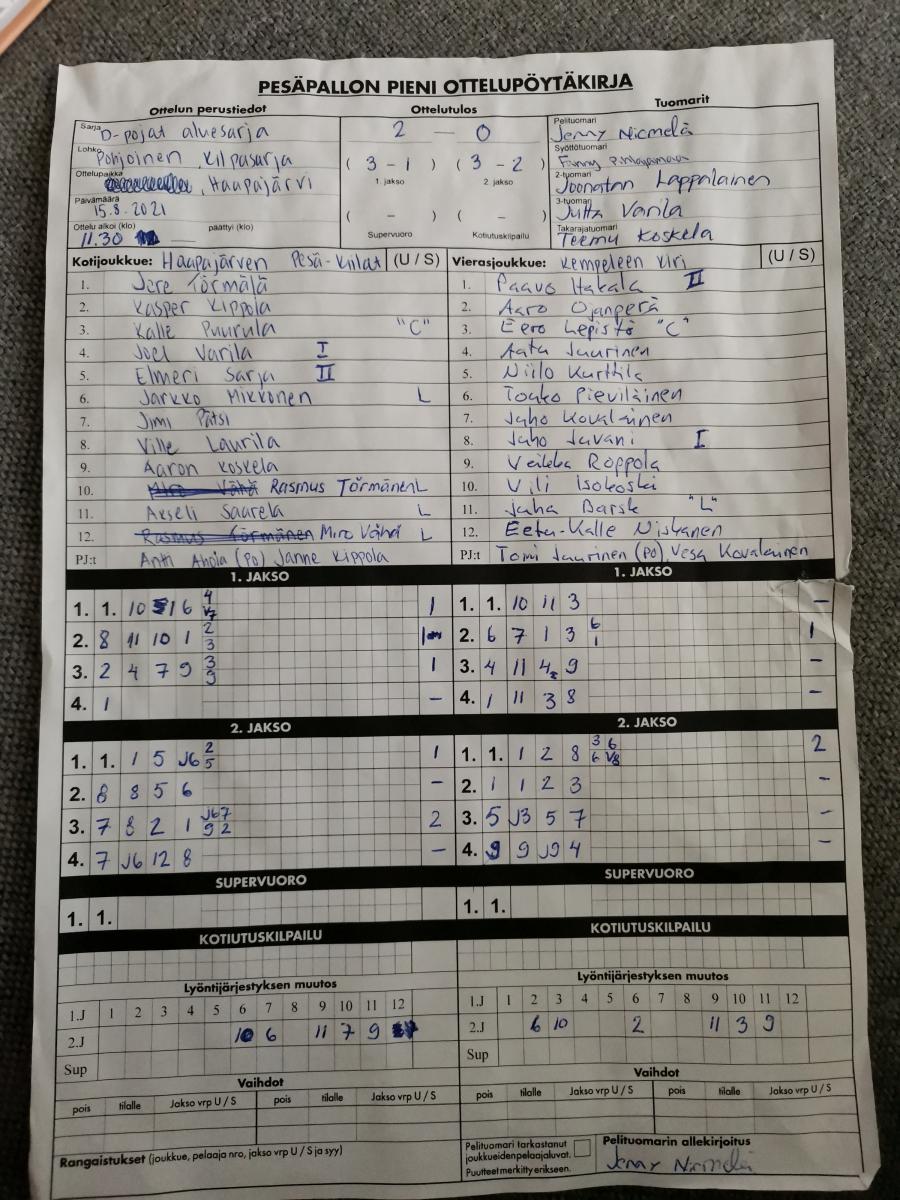 PESÄPALLON PIENI OTTELUPÖYTÄKIRJA
Ottelun perustiedot Ottelutulos Tuomarit
Sarja D-pojat aluesarja
Lohko Pohjoinen kilpasarja
Ottelupaikka , Haapajärvi
Päivämäärä 15.8.2021
Ottelu alkoi (klo) 11.30 — päättyi (klo)
2 — 0
( 3 - 1 ) ( 3 - 2 )
1. jakso 2. jakso
( - ) ( - )
Supervuoro Kotiutuskilpailu
Pelituomari Jenny Niemelä
Syöttötuomari Fanny
2-tuomari Joonatan Lappalainen
3-tuomari Jutta Varila
Takarajatuomari Teemu Koskela
Kotijoukkue: Haapajärven Pesä-Kiilat (U / S)
1. Jere Törmälä
2. Kasper Kippola
3. Kalle Puurula "C"
4. Joel Varila I
5. Elmeri Sarja II
6. Jarkko Mikkonen L
7. Jimi Pätsi
8. Ville Laurila
9. Aaron Koskela
10. Rasmus Törmänen L
11. Akseli Saarela L
12. Rasmus Törmänen Miro Vähä L
PJ:t Antti Ahola (po) Janne Kippola
Vierasjoukkue: Kempeleen Kiri (U / S)
1. Paavo Hakala II
2. Aaro Ojanperä
3. Eero Lepistö "C"
4. Aatu Juurinen
5. Niilo Kurttila
6. Touko Pieviläinen
7. Juho Kovalainen
8. Juho Juvani I
9. Veikka Roppola
10. Vili Isokoski
11. Juha Barsk "L"
12. Eetu-Kalle Niskanen
PJ:t Tomi Juurinen (po), Vesa Kovalainen
1. JAKSO
1. 1. 10 1 6 4 V7 1
2. 8 11 10 1 2 3 1
3. 2 4 7 9 3 9 1
4. 1 –
1. JAKSO
1. 1. 10 11 3 –
2. 6 7 1 3 6 1 1
3. 4 11 4 9 –
4. 1 11 3 8 –
2. JAKSO
1. 1. 1 5 J6 2 5 1
2. 8 8 5 6 –
3. 7 8 2 1 J67 9 2 2
4. 7 J6 12 8 –
2. JAKSO
1. 1. 1 2 8 3 6 6 V8 2
2. 1 1 2 3 –
3. 5 J3 5 7 –
4. 9 9 J9 4 –
SUPERVUORO
1. 1.
SUPERVUORO
1. 1.
KOTIUTUSKILPAILU
KOTIUTUSKILPAILU
Lyöntijärjestyksen muutos
1.J 1 2 3 4 5 6 7 8 9 10 11 12
2.J 10 6 11 7 9
Sup
Lyöntijärjestyksen muutos
1.J 1 2 3 4 5 6 7 8 9 10 11 12
2.J 6 10 2 11 3 9
Sup
Vaihdot
pois tilalle Jakso vrp U / S pois tilalle Jakso vrp U / S
Vaihdot
pois tilalle Jakso vrp U / S pois tilalle Jakso vrp U / S
Rangaistukset (joukkue, pelaaja nro, jakso vrp U / S ja syy)
Pelituomari tarkastanut
joukkueidenpelaajaluvat.
Puutteet merkitty erikseen.
Pelituomarin allekirjoitus
Jenny Niemelä